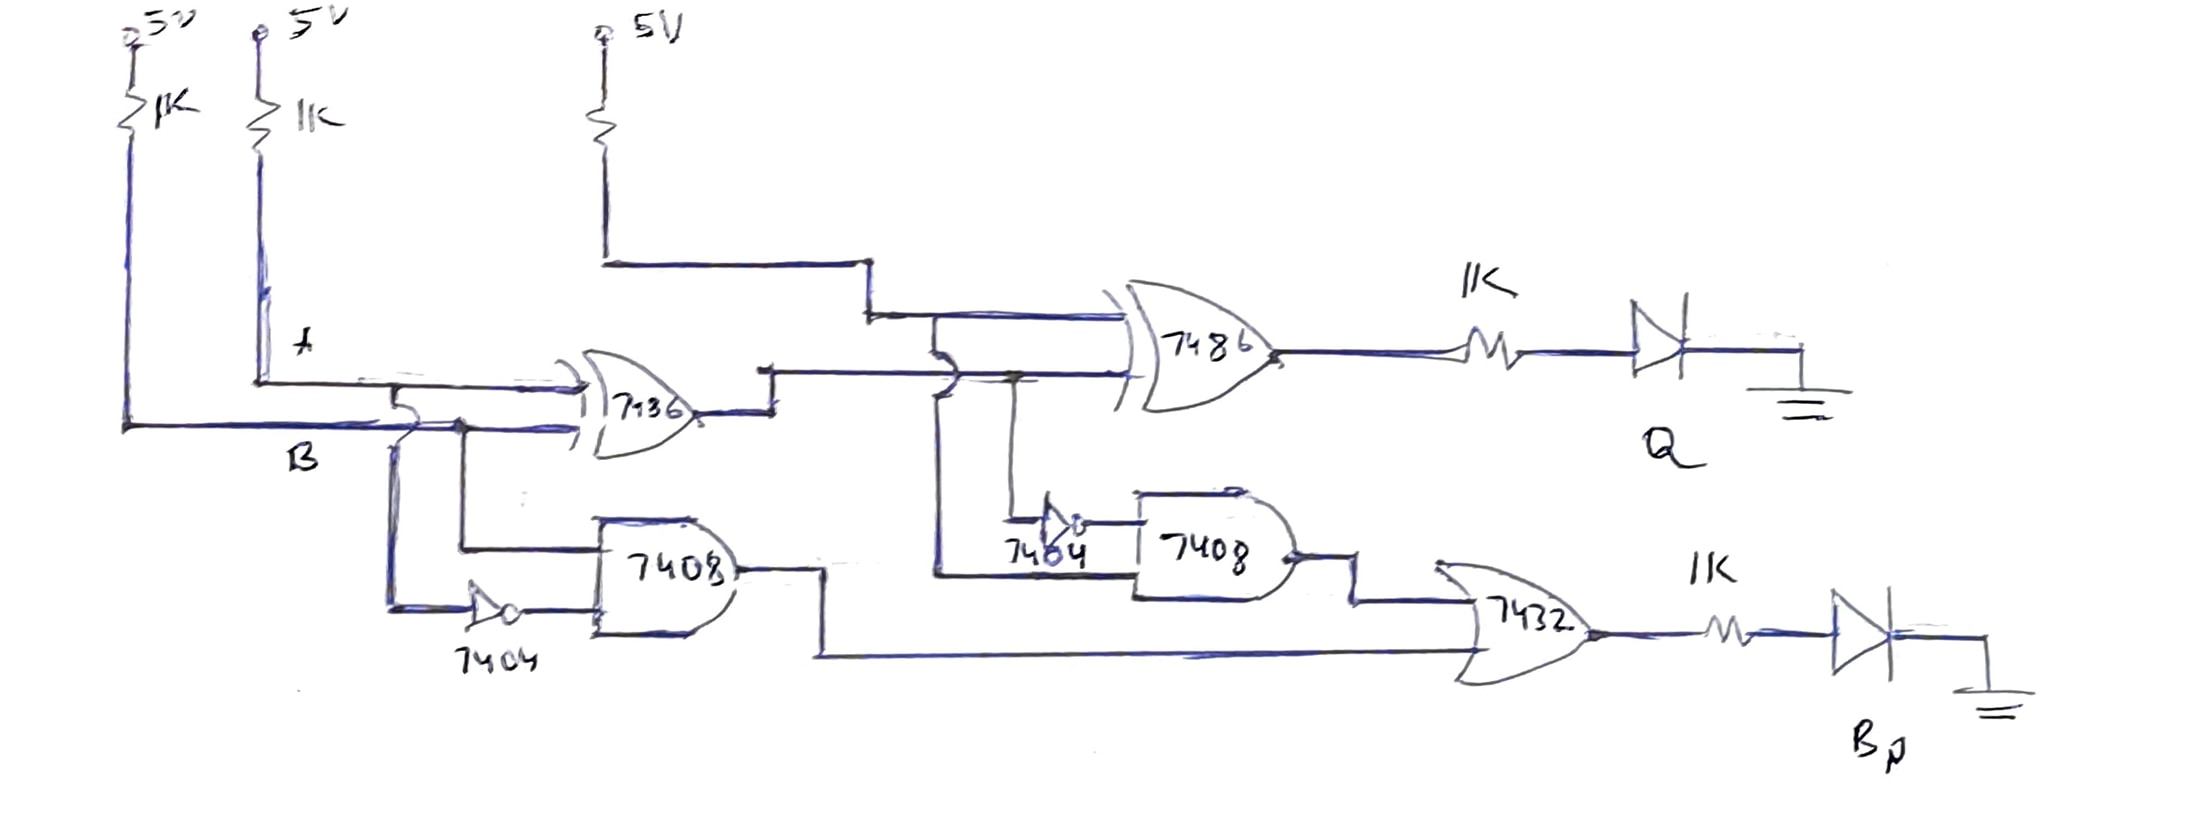 5V
5V
5V
1K
1K
A
B
7436
7486
1K
Q
7408
7404
7404
7408
7432
1K
Bp